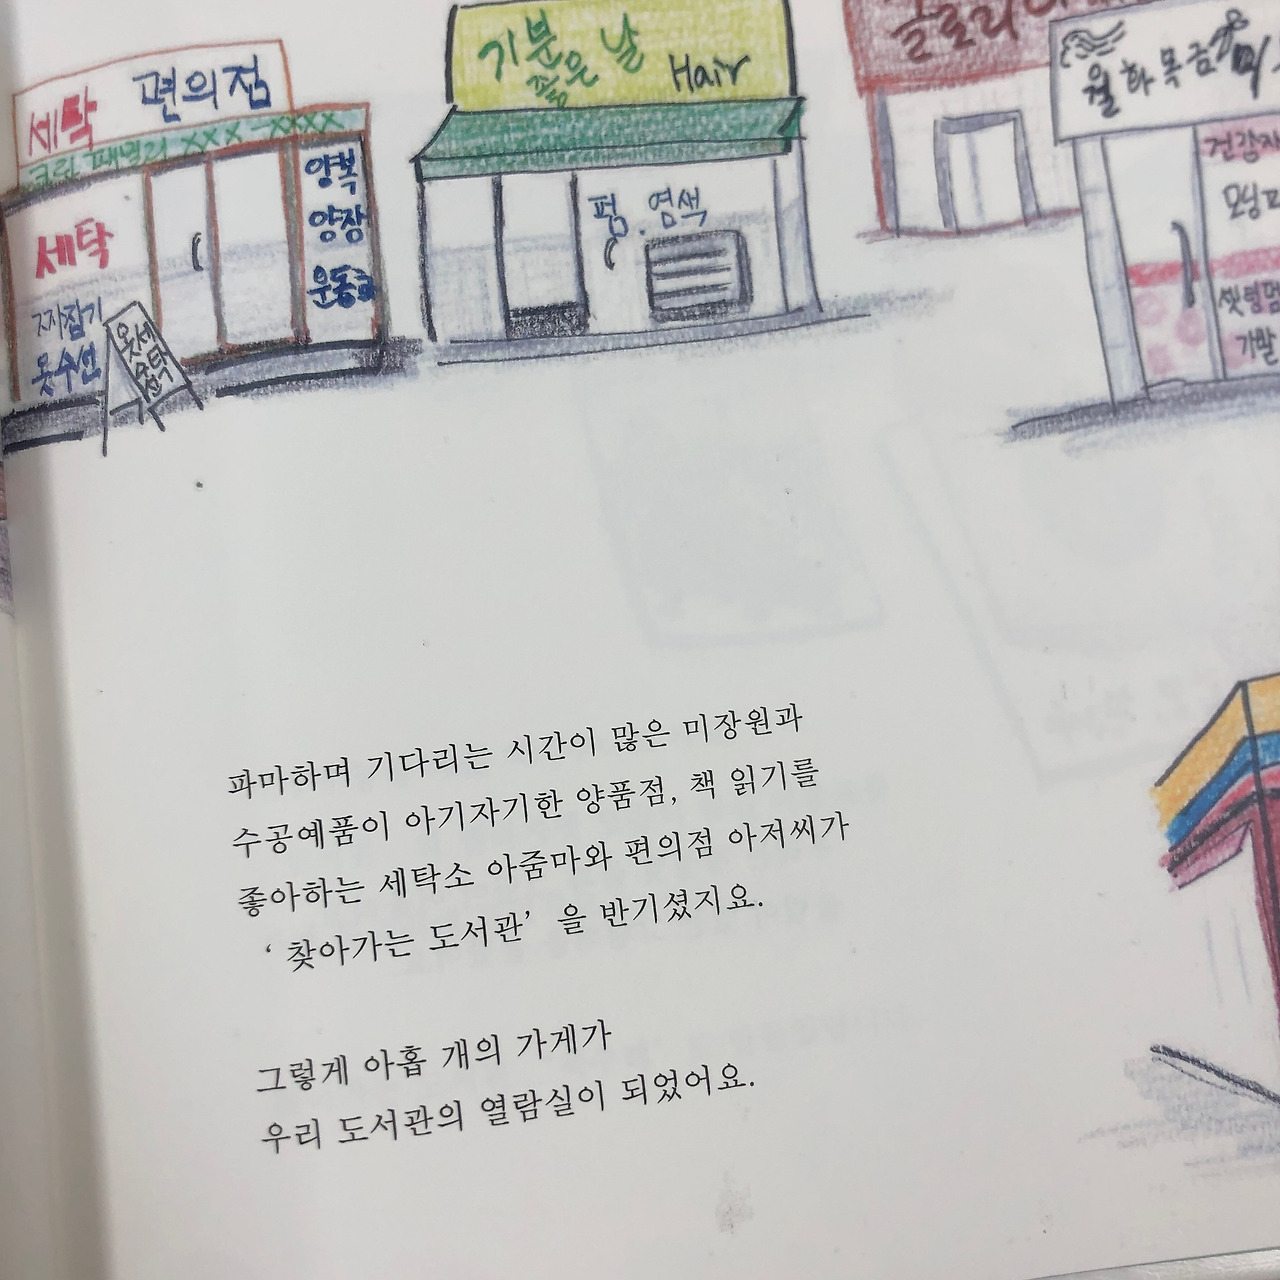 세탁 편의점
크린 패밀리 XXX-XXXX
세탁
짜잡기
옷수선
옷 세탁
수선
양복
양장
운동화
기분
좋은 날
Hair
펌. 염색
글로리아
월화목금
건강
모닝
셋팅펌
가발
파마하며 기다리는 시간이 많은 미장원과
수공예품이 아기자기한 양품점, 책 읽기를
좋아하는 세탁소 아줌마와 편의점 아저씨가
‘ 찾아가는 도서관’ 을 반기셨지요.
그렇게 아홉 개의 가게가
우리 도서관의 열람실이 되었어요.